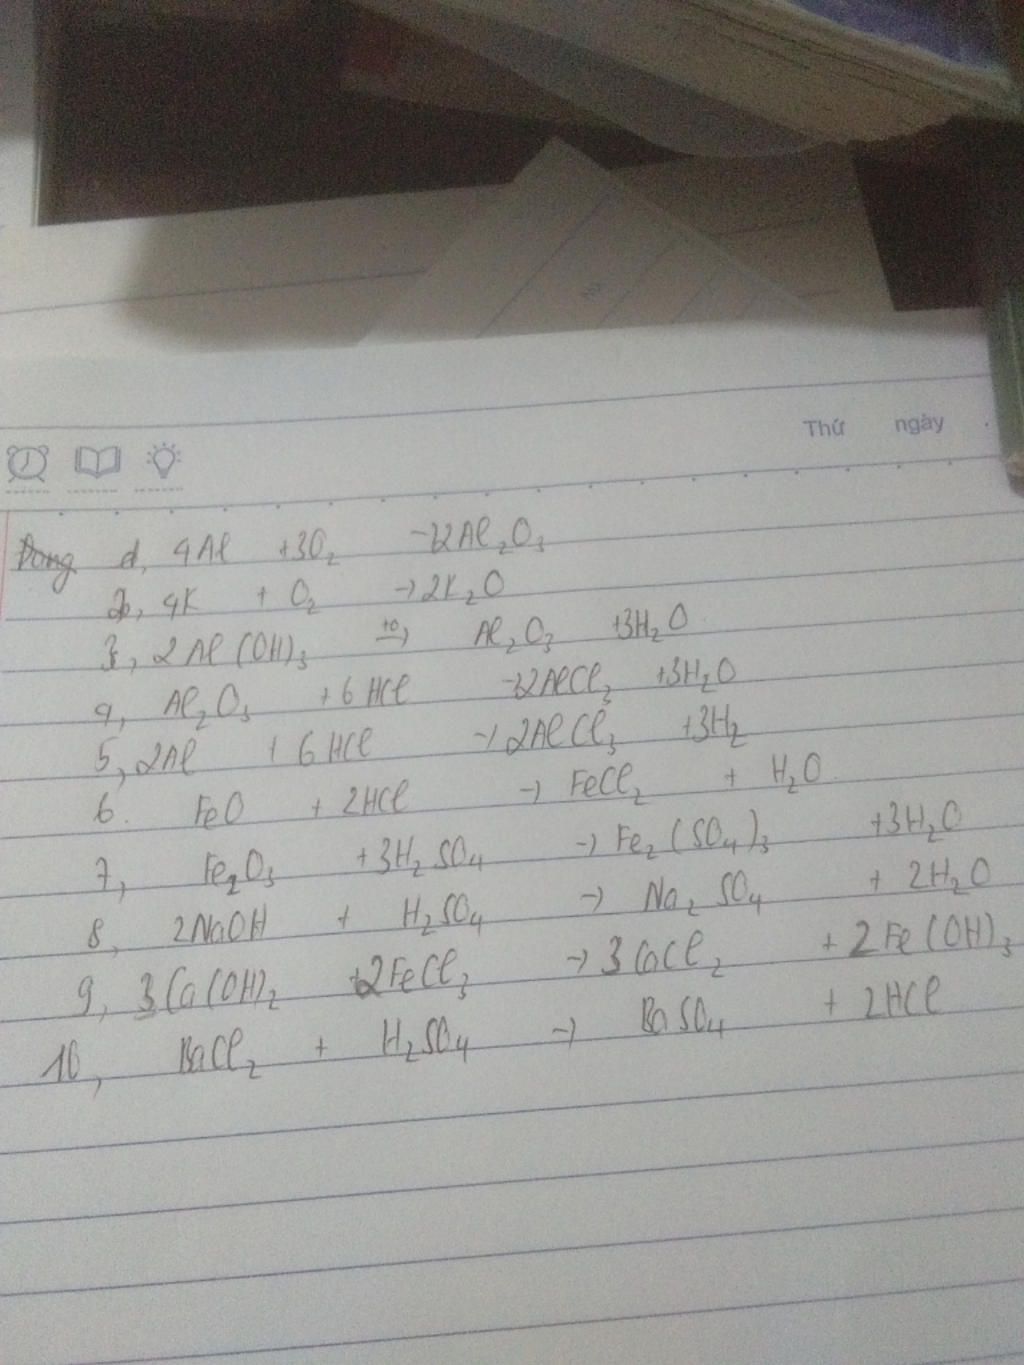 Thứ ngày
Dạng 1, 4Al +3O₂ →2Al₂O₃
2, 4K + O₂ →2K₂O
3, 2Al(OH)₃ t° → Al₂O₃ +3H₂O
4, Al₂O₃ +6HCl →2AlCl₃ +3H₂O
5, 2Al + 6HCl → 2AlCl₃ +3H₂
6. FeO + 2HCl → FeCl₂ + H₂O
7, Fe₂O₃ +3H₂SO₄ → Fe₂(SO₄)₃ +3H₂O
8, 2NaOH + H₂SO₄ → Na₂SO₄ + 2H₂O
9, 3Ca(OH)₂ +2FeCl₃ → 3CaCl₂ + 2Fe(OH)₃
10, BaCl₂ + H₂SO₄ → BaSO₄ + 2HCl